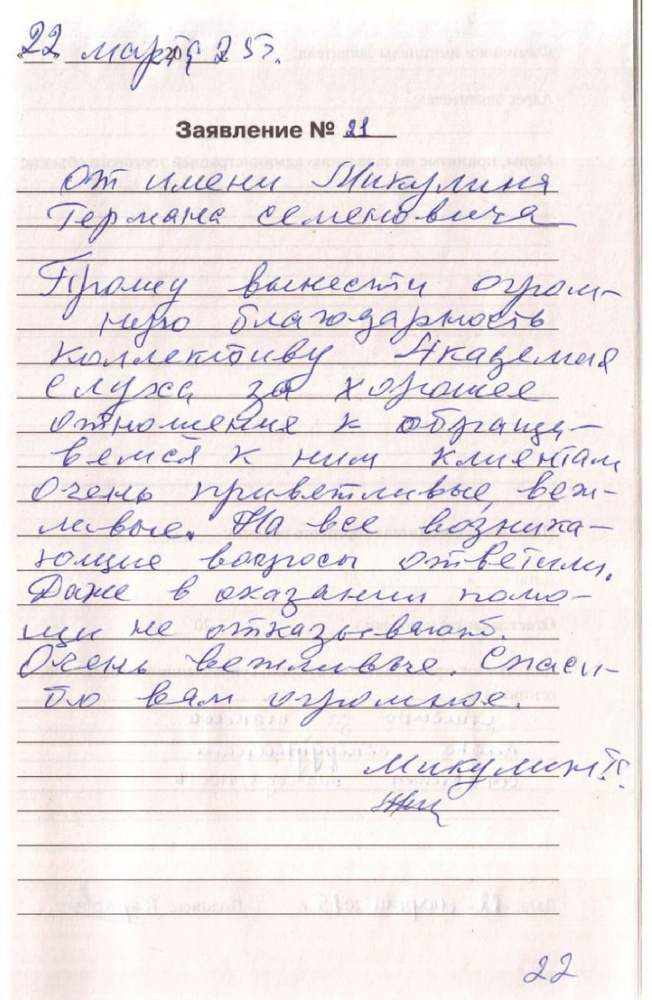 22 марта 2025г.
Заявление № 21
От имени Микулина
Германа семеновича
Прошу вынести огром-
ную благодарность
коллективу Академия
Слуха за хорошее
отношение к обраща-
вемся к ним клиентам
очень приветливые, веж-
ливые. На все возника-
ющие вопросы ответили.
Даже в оказании помо-
щи не отказывают.
Очень вежливые. Спаси-
бо вам огромное.
Микулин Г.
22